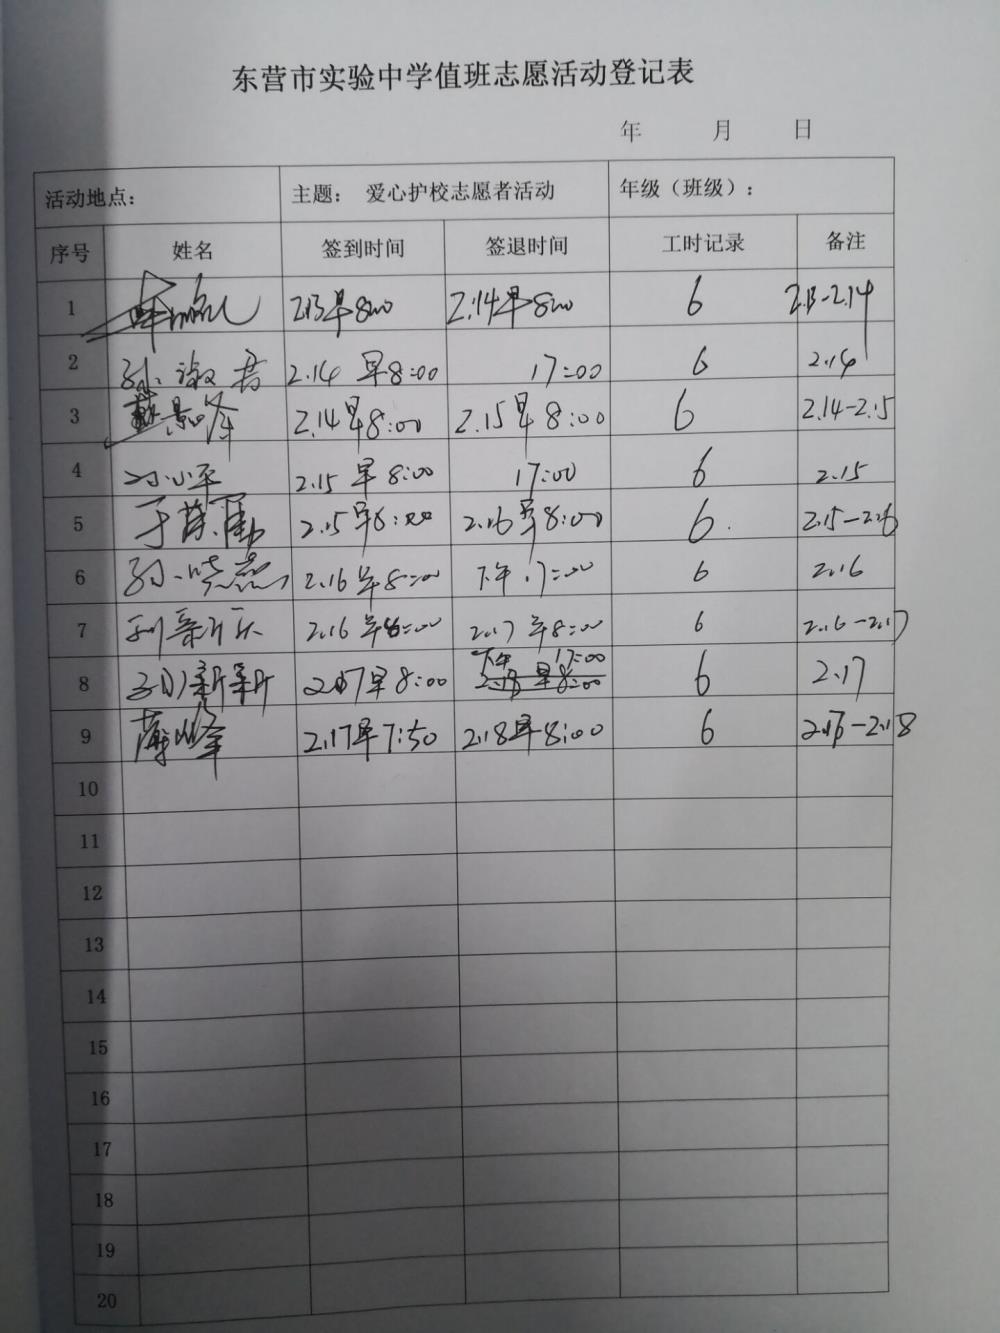 东营市实验中学值班志愿活动登记表
年 月 日
活动地点: 主题: 爱心护校志愿者活动 年级（班级）:
序号 姓名 签到时间 签退时间 工时记录 备注
1 2.13早8:00 2.14早8:00 6 2.13-2.14
2 孙淑君 2.14 早8:00 17:00 6 2.14
3 2.14早8:00 2.15早8:00 6 2.14-2.15
4 孙小平 2.15 早8:00 17:00 6 2.15
5 2.15早8:00 2.16早8:00 6. 2.15-2.16
6 孙晓燕 2.16早8:00 下午17:00 6 2.16
7 2.16早8:00 2.17早8:00 6 2.16-2.17
8 2.17早8:00 下午17:00 2.18早8:00 6 2.17
9 薄峰 2.17早7:50 2.18早8:00 6 2.17-2.18
10
11
12
13
14
15
16
17
18
19
20